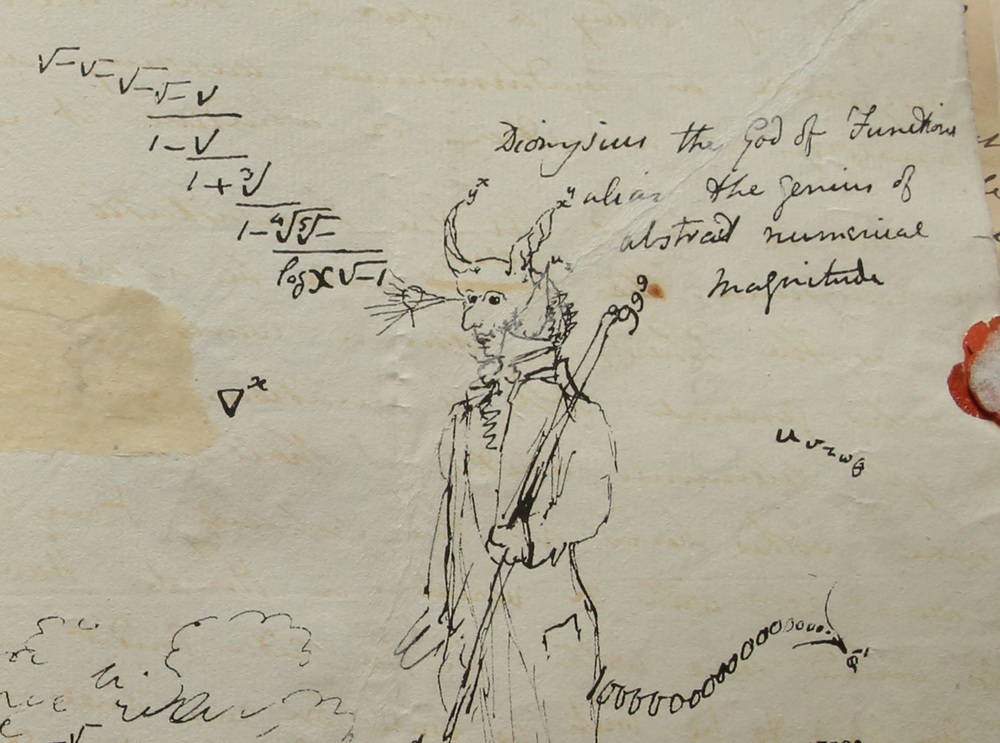 √− √− √− √− √
1 − √
1 + ∛
1 − ∜ ⁵√−
log x √−1
Dionysius the God of Functions
alias the genius of
abstract numerical
magnitude
y^x
x^y
999
∇^x
u v z w θ
φ^-1